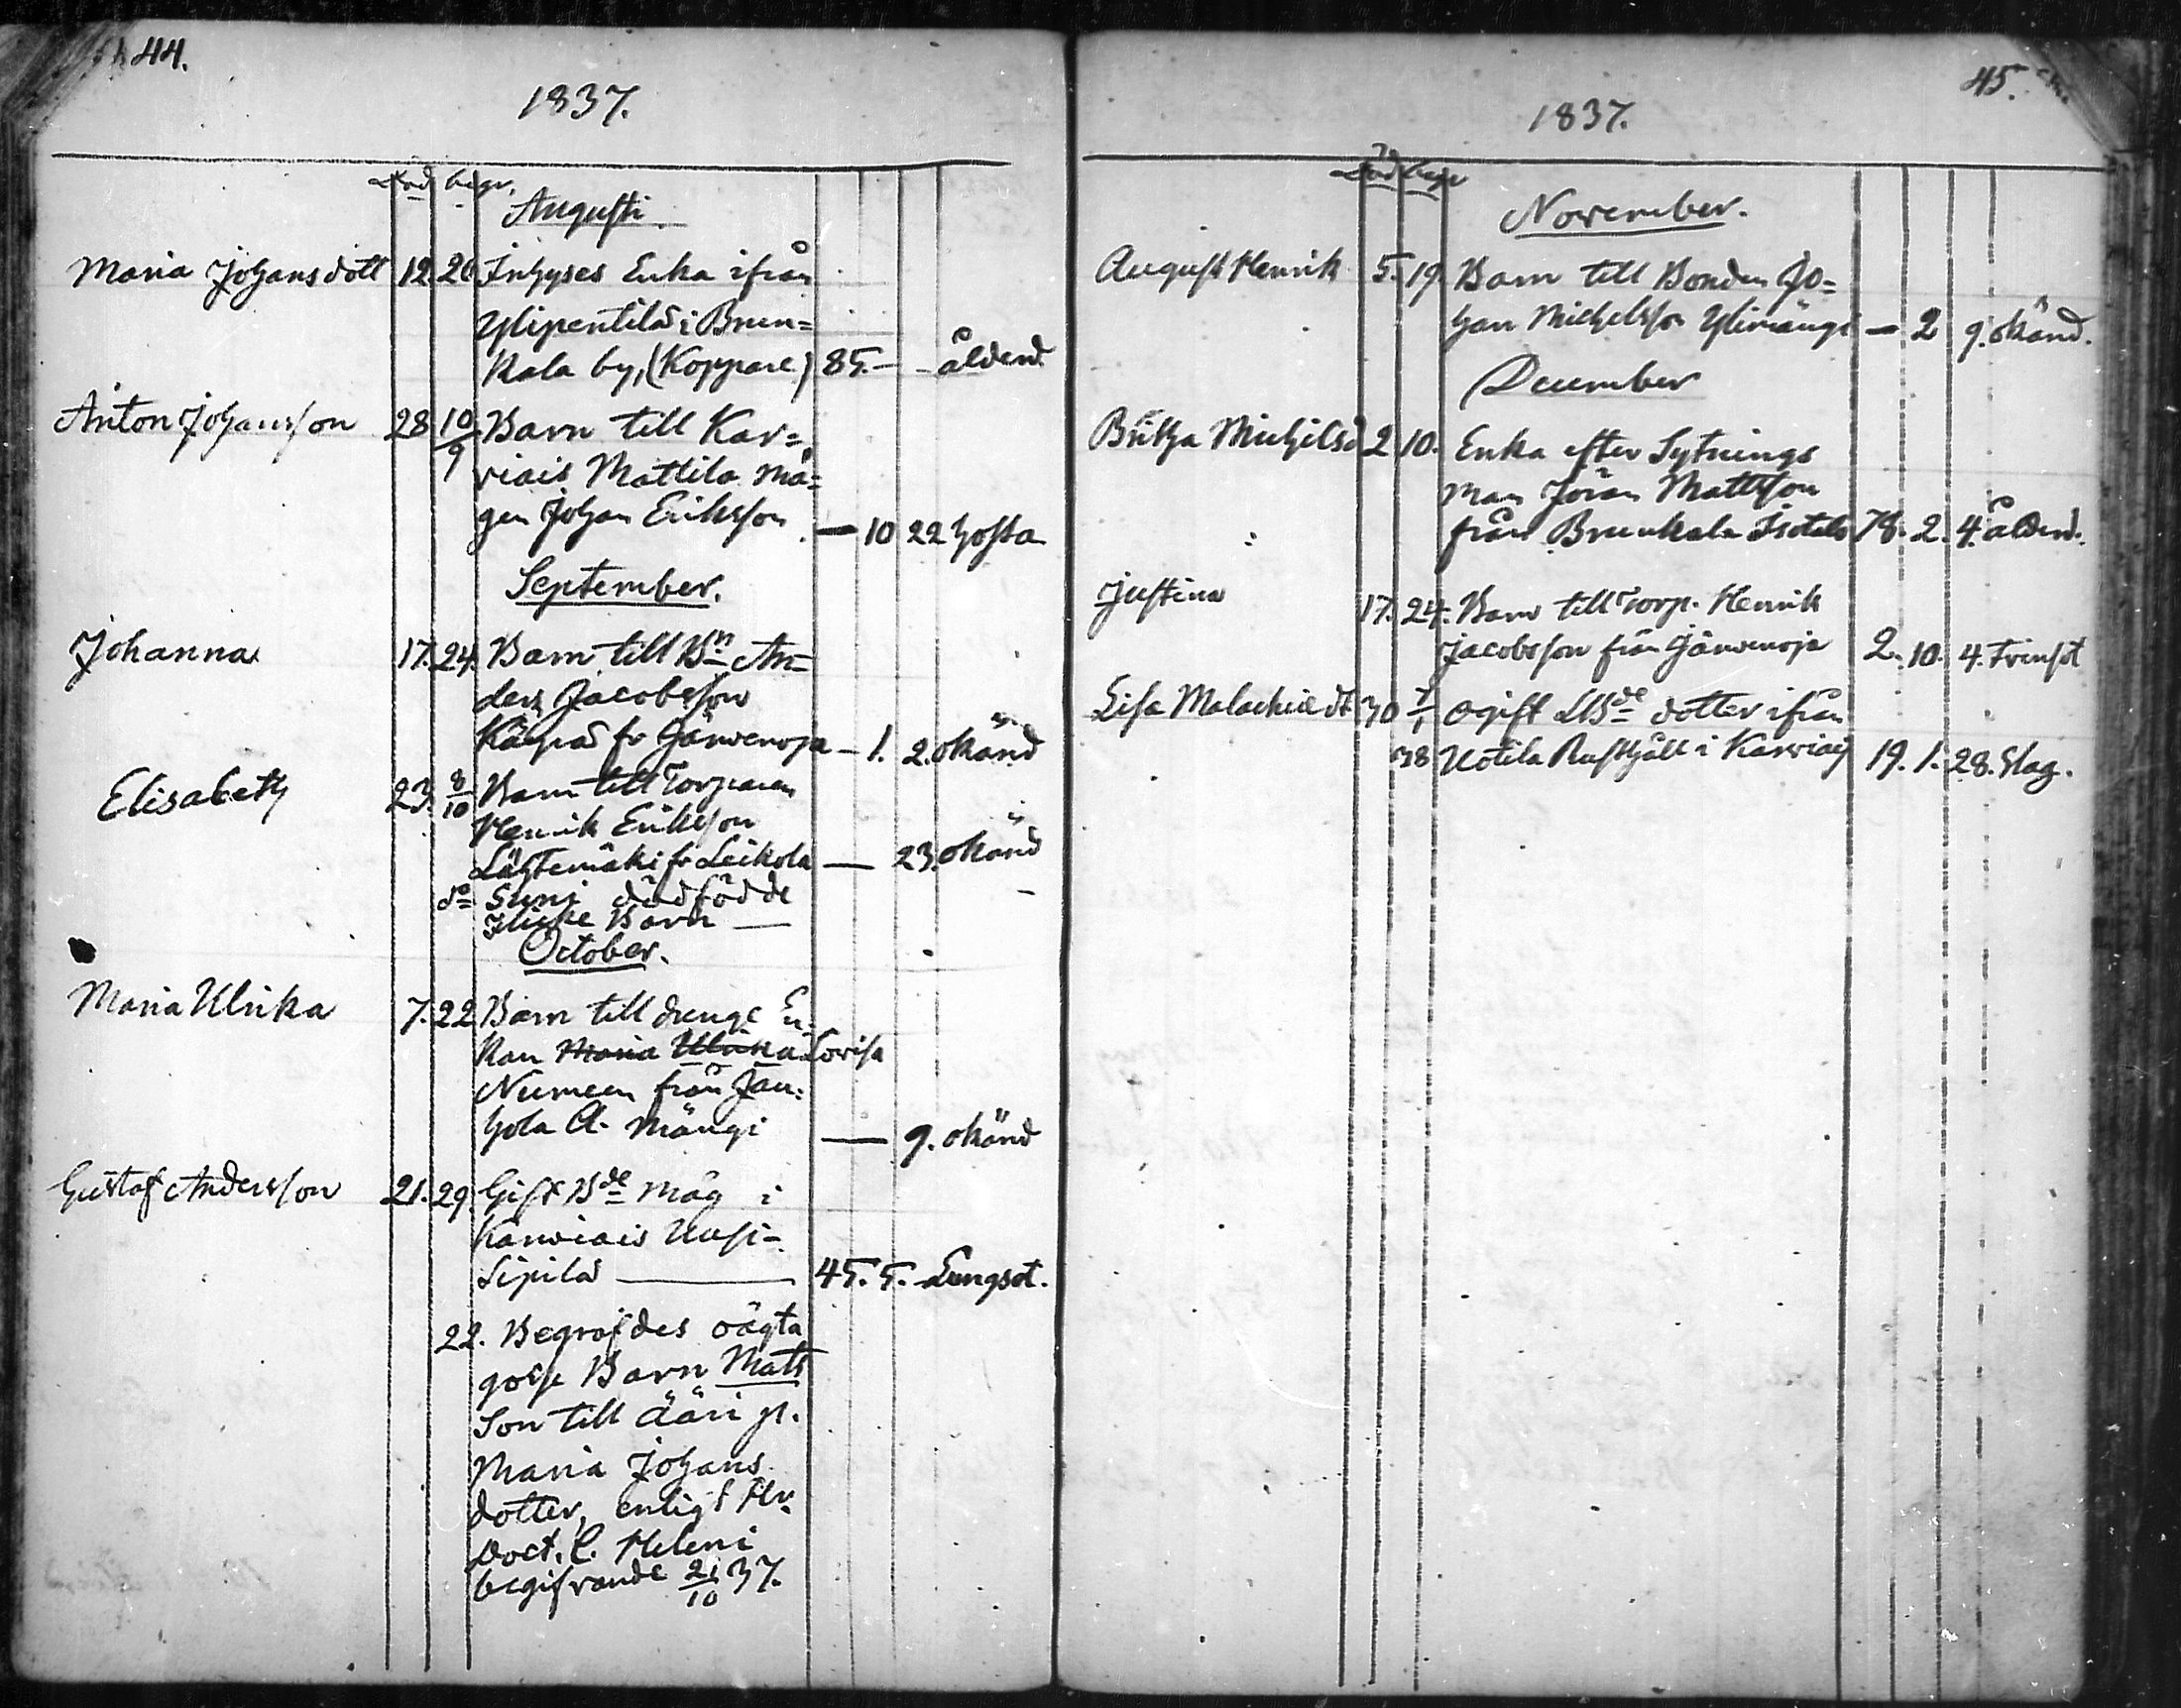 44.
1837.
Död begr.
Augusti
Maria Johansdott 12. 26 Inhyses Enka ifrån
Ylipentilä i Brun=
kala by, (Koppare) 85. — - ålderd.
Anton Johansson 28 10/9 Barn till Kar=
viais Mattila Må=
gen Johan Eriksson — 10 22 hosta
September.
Johanna 17. 24. Barn till Bn An=
ders Jacobsson
fr Järvenoja — 1. 2. okänd
Elisabeth 23. 8/10 Barn till Torparen
Henrik Eriksson
Lähtemäki fr Leikola — 23. okänd
do dödfödde
Flicke Barn —
October.
Maria Ulrika 7. 22. Barn till drenge En=
kan Maria Ulrika Lovisa
från Jan=
hola A. Mängi — 9. okänd
Gustaf Andersson 21. 29. Gift Bde Måg i
Karviais Uusi-
Sipilä — 45. 5. - Lungsot.
22. Begrafdes oägta
gosse Barn Mats
Son till
Maria Johans
dotter, enligt Hr
Doct. C. Heleni
begifvande 21/10 37.
45.
1837.
Död begr
November.
August Henrik 5. 19. Barn till Bonden Jo=
han Michelsson Ylimängi — 2 9. okänd.
December
Britha Michelsd 2 10. Enka efter Sytnings
man Jöran Mattsson
från Brunkala Isotalo 78. 2. 4. ålderd.
Justina 17. 24. Barn till Torp. Henrik
Jacobsson från Järvenoja 2. 10. 4. Trinsot
Lisa Malachiedt 30 7/1 ogift LBde dotter ifrån
38 Uotila Rusthåll i Karviais 19. 1. 28. Slag.